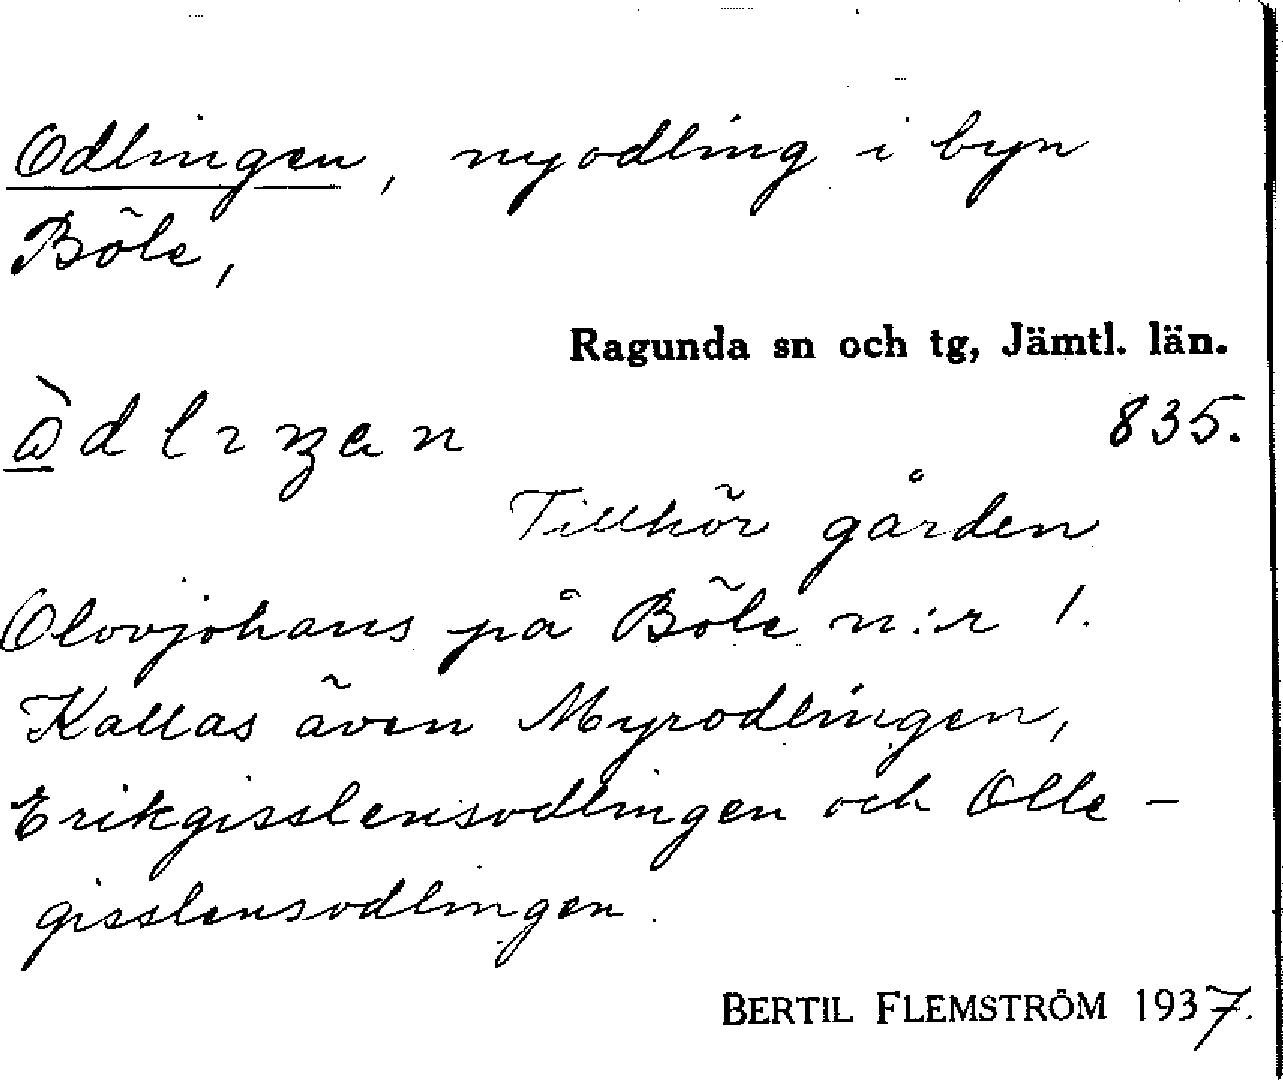 Odlingen, nyodling i byn
Böle,
Ragunda sn och tg, Jämtl. län.
835.
Tillhör gården
Olovjohans på Böle n:r 1.
Kallas även Myrodlingen,
Erikgisslensodlingen och Olle-
gisslensodlingen.
BERTIL FLEMSTRÖM 1937.